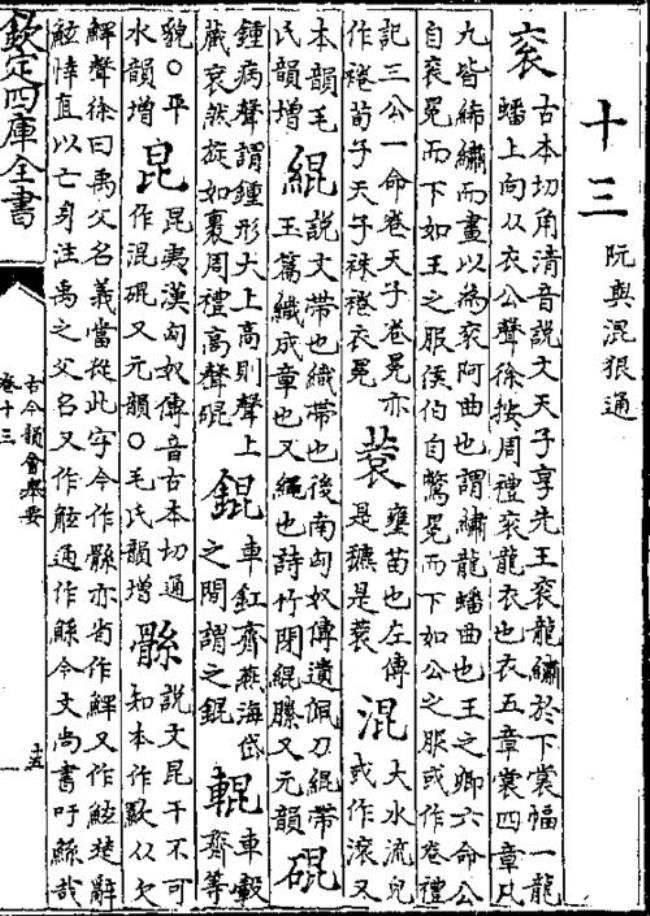 十三 阮與混狠通
袞 古本切角清音說文天子享先王袞龍繡於下裳幅一龍
蟠上向从衣公聲徐按周禮袞龍衣也衣五章裳四章凡
九皆絺繡而畫以為袞阿曲也謂繡龍蟠曲也王之卿六命公
自袞冕而下如王之服侯伯自鷩冕而下如公之服或作卷禮
記三公一命卷天子卷冕亦
作裷荀子天子袾裷衣冕
蓘 壅苗也左傳
是穮是蓘
混 大水流皃
或作滚又
本韻毛
氏韻增
緄 說文帶也織帶也後南匈奴傳遺佩刀緄帶
玉篇織成章也又繩也詩竹閉緄縢又元韻
䃂
鍾病聲謂鍾形大上高則聲上
藏袞然旋如裏周禮高聲䃂
錕 車釭齊燕海岱
之間謂之錕
輥 車轂
齊等
貌○平
水韻增
昆 昆夷漢匈奴傳音古本切通
作混䃂又元韻○毛氏韻增
說文昆干不可
知本作 从欠
聲徐曰禹父名義當從此字今作 亦省作 又作 楚辭
婞直以亡身注禹之父名又作 通作鯀今文尚書吁鯀哉
欽定四庫全書
古今韻會舉要
卷十三
十五